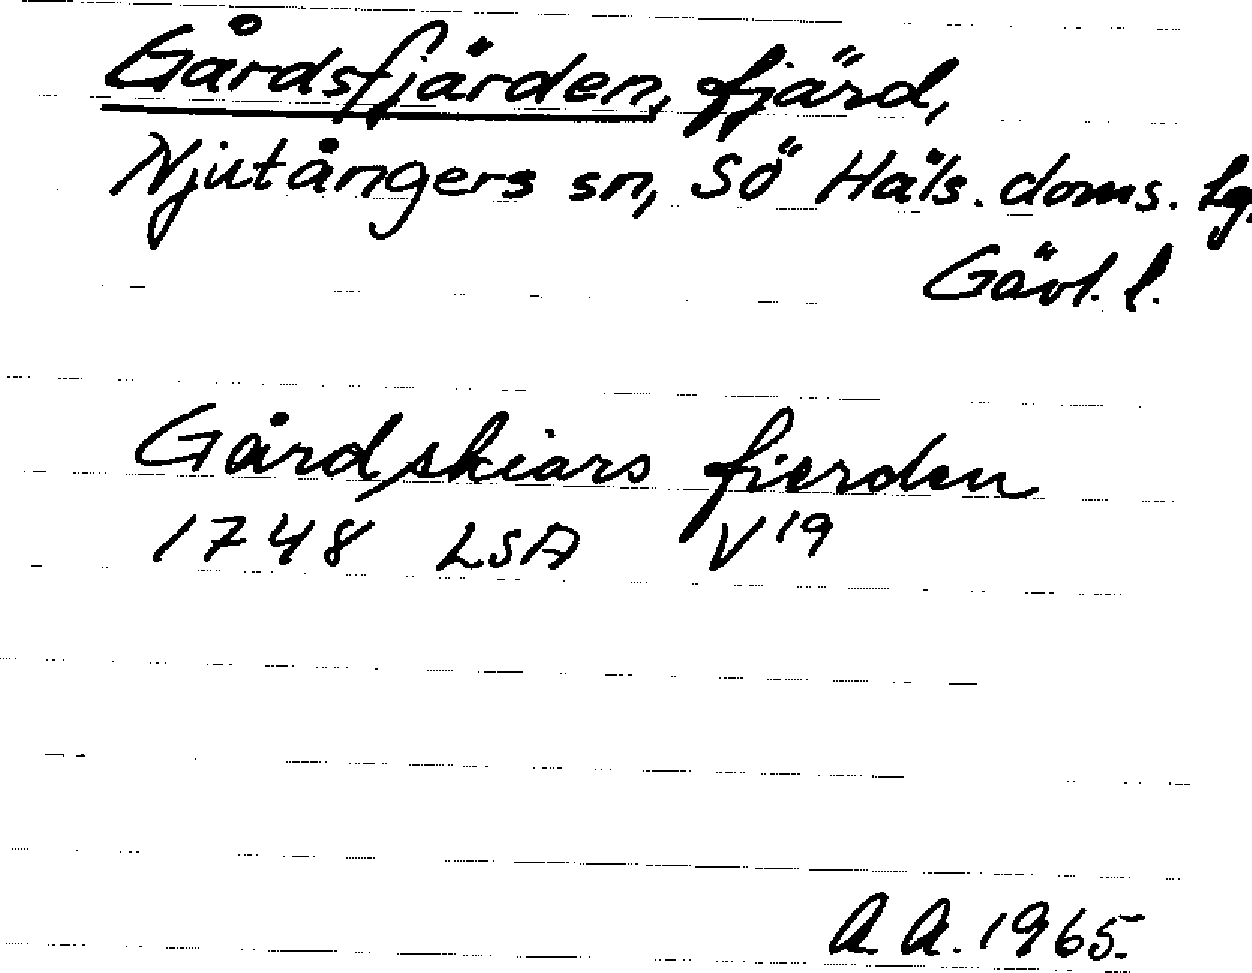 Gårdsfjärden, fjärd,
Njutångers sn, Sö Häls. doms. lg.
Gävl. l.
Gårdskiärs fierden
1748 LSA V19
A. A. 1965.